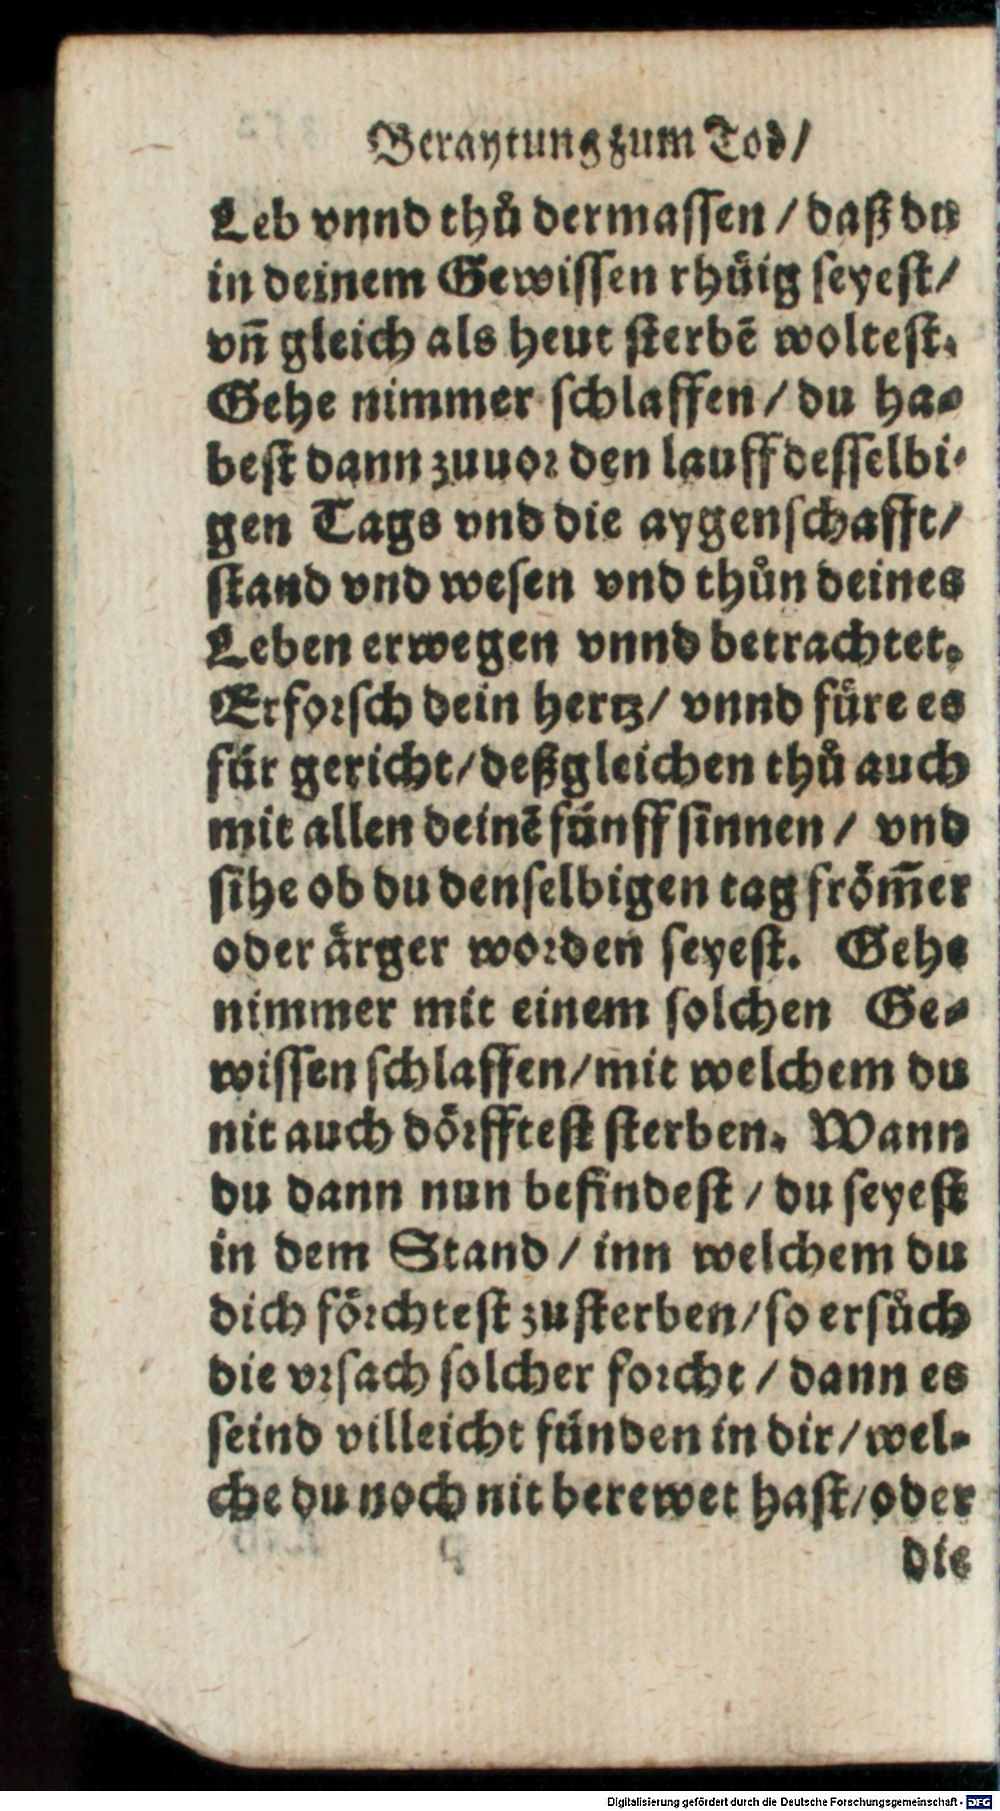 Beraytung zum Tod/
Leb vnnd thuͦ dermassen / daß du
in deinem Gewissen rhuͤig seyest/
vn̄ gleich als heut sterbē woltest.
Gehe nimmer schlaffen / du ha-
best dann zuuor den lauff desselbi-
gen Tags vnd die aygenschafft/
stand vnd wesen vnd thuͦn deines
Leben erwegen vnnd betrachtet.
Erforsch dein hertz/ vnnd fuͤre es
fuͤr gericht/deßgleichen thuͦ auch
mit allen deinē fuͤnff sinnen / vnd
sihe ob du denselbigen tag froͤm̄er
oder aͤrger worden seyest. Gehe
nimmer mit einem solchen Ge-
wissen schlaffen/mit welchem du
nit auch doͤrfftest sterben. Wann
du dann nun befindest / du seyest
in dem Stand / inn welchem du
dich foͤrchtest zu sterben/so ersuͦch
die vrsach solcher forcht / dann es
seind villeicht suͤnden in dir/wel-
che du noch nit berewet hast/oder
die
Digitalisierung gefördert durch die Deutsche Forschungsgemeinschaft - DFG